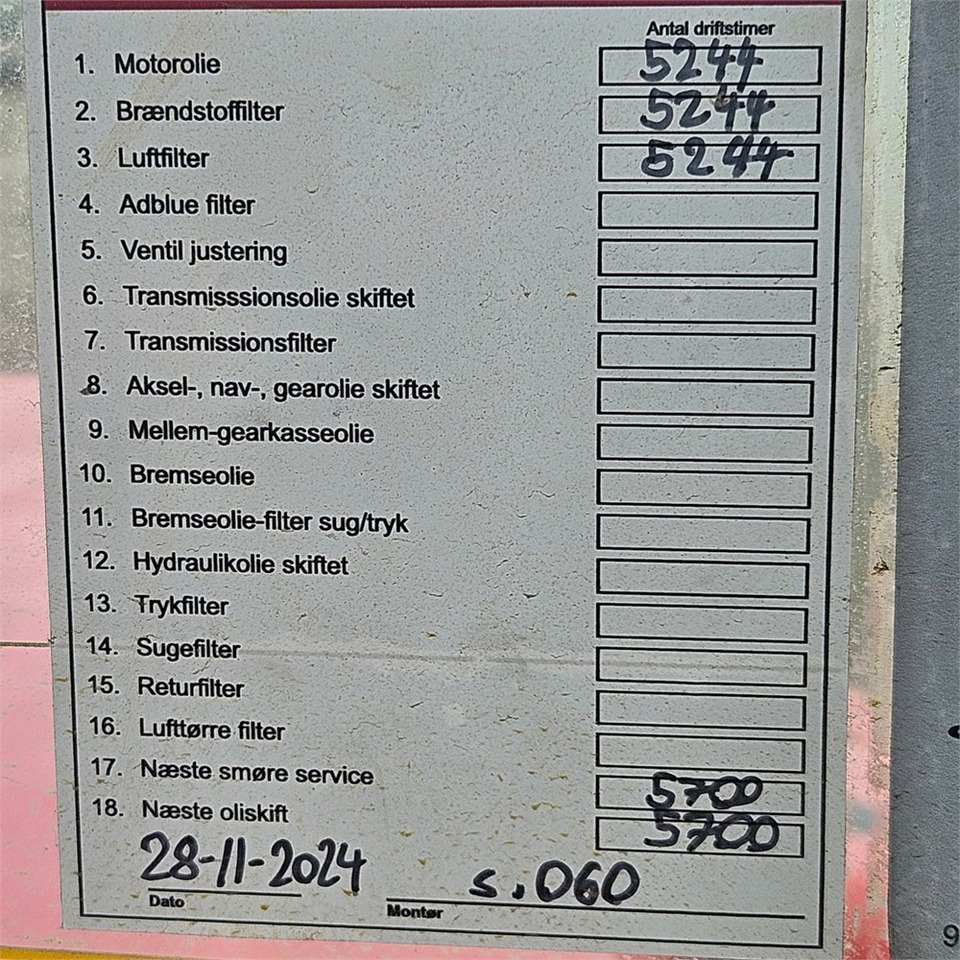 Antal driftstimer
1. Motorolie 5244
2. Brændstoffilter 5244
3. Luftfilter 5244
4. Adblue filter
5. Ventil justering
6. Transmisssionsolie skiftet
7. Transmissionsfilter
8. Aksel-, nav-, gearolie skiftet
9. Mellem-gearkasseolie
10. Bremseolie
11. Bremseolie-filter sug/tryk
12. Hydraulikolie skiftet
13. Trykfilter
14. Sugefilter
15. Returfilter
16. Lufttørre filter
17. Næste smøre service 5700
18. Næste oliskift 5700
28-11-2024 s.060
Dato Montør
9